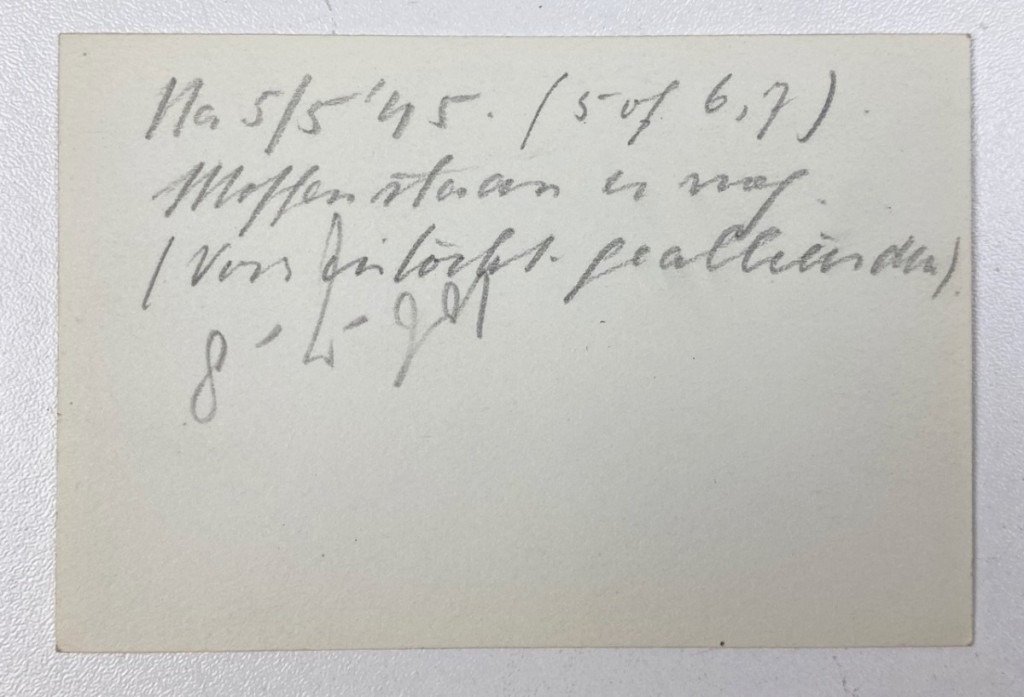 Na 5/5 '45. (5 of 6,7).
Moffen staan er nog.
(Voor intocht geallieerden).
8